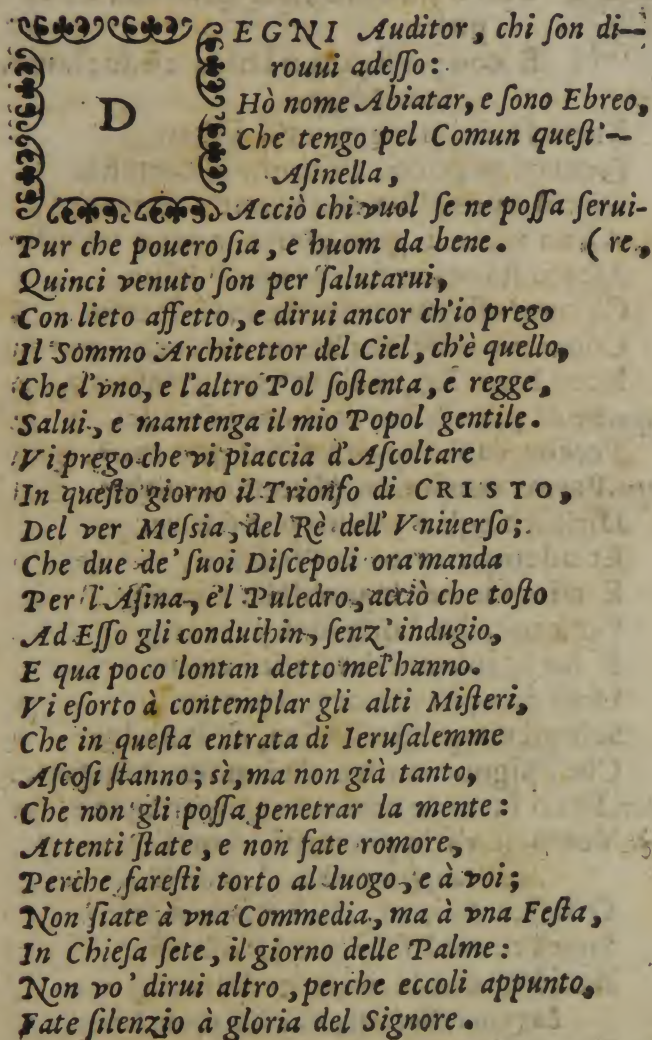 DEGNI Auditor, chi ſon di-
rouui adeſſo:
Hò nome Abiatar, e ſono Ebreo,
Che tengo pel Comun queſt'-
Aſinella,
Acciò chi vuol ſe ne poſſa ſerui-
Pur che pouero ſia, e huom da bene. (re,
Quinci venuto ſon per ſalutarui,
Con lieto affetto, e dirui ancor ch'io prego
Il Sommo Architettor del Ciel, ch'è quello,
Che l'vno, e l'altro Pol ſoſtenta, e regge,
Salui, e mantenga il mio Popol gentile.
Vi prego che vi piaccia d'Aſcoltare
In queſto giorno il Trionfo di CRISTO,
Del ver Meſsia, del Rè dell' Vniuerſo;
Che due de' ſuoi Diſcepoli ora manda
Per l'Aſina, e'l Puledro, acciò che toſto
Ad Eſſo gli conduchin, ſenz' indugio,
E qua poco lontan detto mel'hanno.
Vi eſorto à contemplar gli alti Miſteri,
Che in queſta entrata di Ieruſalemme
Aſcoſi ſtanno; sì, ma non già tanto,
Che non gli poſſa penetrar la mente:
Attenti ſtate, e non fate romore,
Perche fareſti torto al luogo, e à voi;
Non ſiate à vna Commedia, ma à vna Feſta,
In Chieſa ſete, il giorno delle Palme:
Non vo' dirui altro, perche eccoli appunto,
Fate ſilenzio à gloria del Signore.